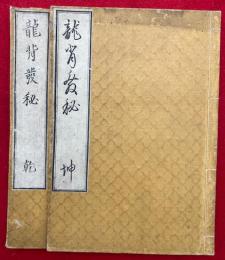 龍背發秘 乾
龍背發秘 坤